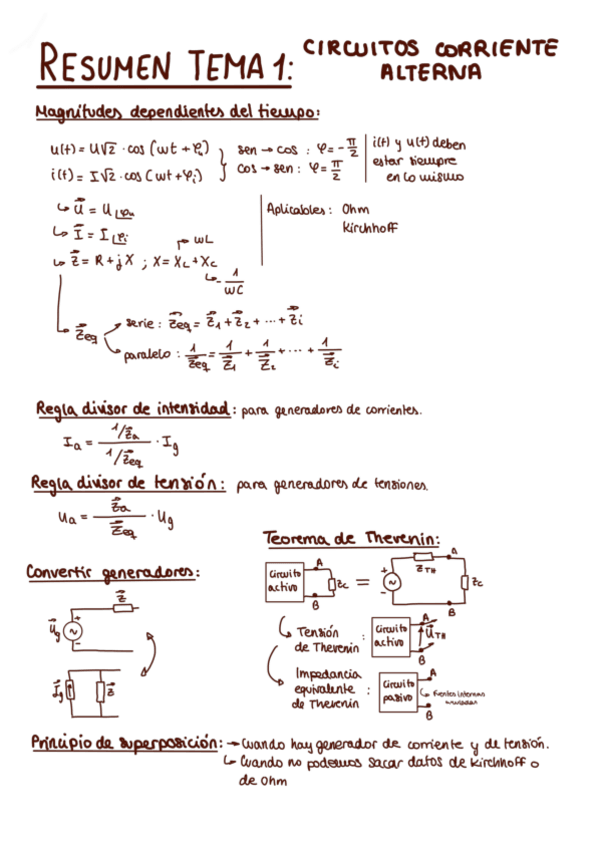 RESUMEN TEMA 1: CIRCUITOS CORRIENTE
ALTERNA
Magnitudes dependientes del tiempo:
u(t) = U√2 · cos (wt + φ) sen → cos : φ = - π/2
i(t) = I√2 · cos (wt + φi) cos → sen : φ = π/2
i(t) y u(t) deben
estar siempre
en lo mismo
↳ U = U∟φu
↳ I = I∟φi
↳ Z = R + jX ; X = XL + XC
→ WL
↳ - 1/WC
Aplicables: Ohm
Kirchhoff
↳ Zeq
serie : Zeq = Z1 + Z2 + ··· + Zi
paralelo : 1/Zeq = 1/Z1 + 1/Z2 + ··· + 1/Zi
Regla divisor de intensidad: para generadores de corrientes.
Ia = (1/Za)/(1/Zeq) · Ig
Regla divisor de tensión: para generadores de tensiones.
Ua = Za/Zeq · Ug
Teorema de Thevenin:
Circuito
activo
A
B
Zc
=
+
~
-
ZTH
A
Zc
B
↳ Tensión
de Thevenin :
Circuito
activo
A
UTH
B
Impedancia
equivalente
de Thevenin :
Circuito
pasivo
A
B
↳ Fuentes internas
Convertir generadores:
Z
Ug
+
~
-
Ig
Z
Principio de superposición: → Cuando hay generador de corriente y de tensión.
↳ Cuando no podemos sacar datos de Kirchhoff o
de Ohm